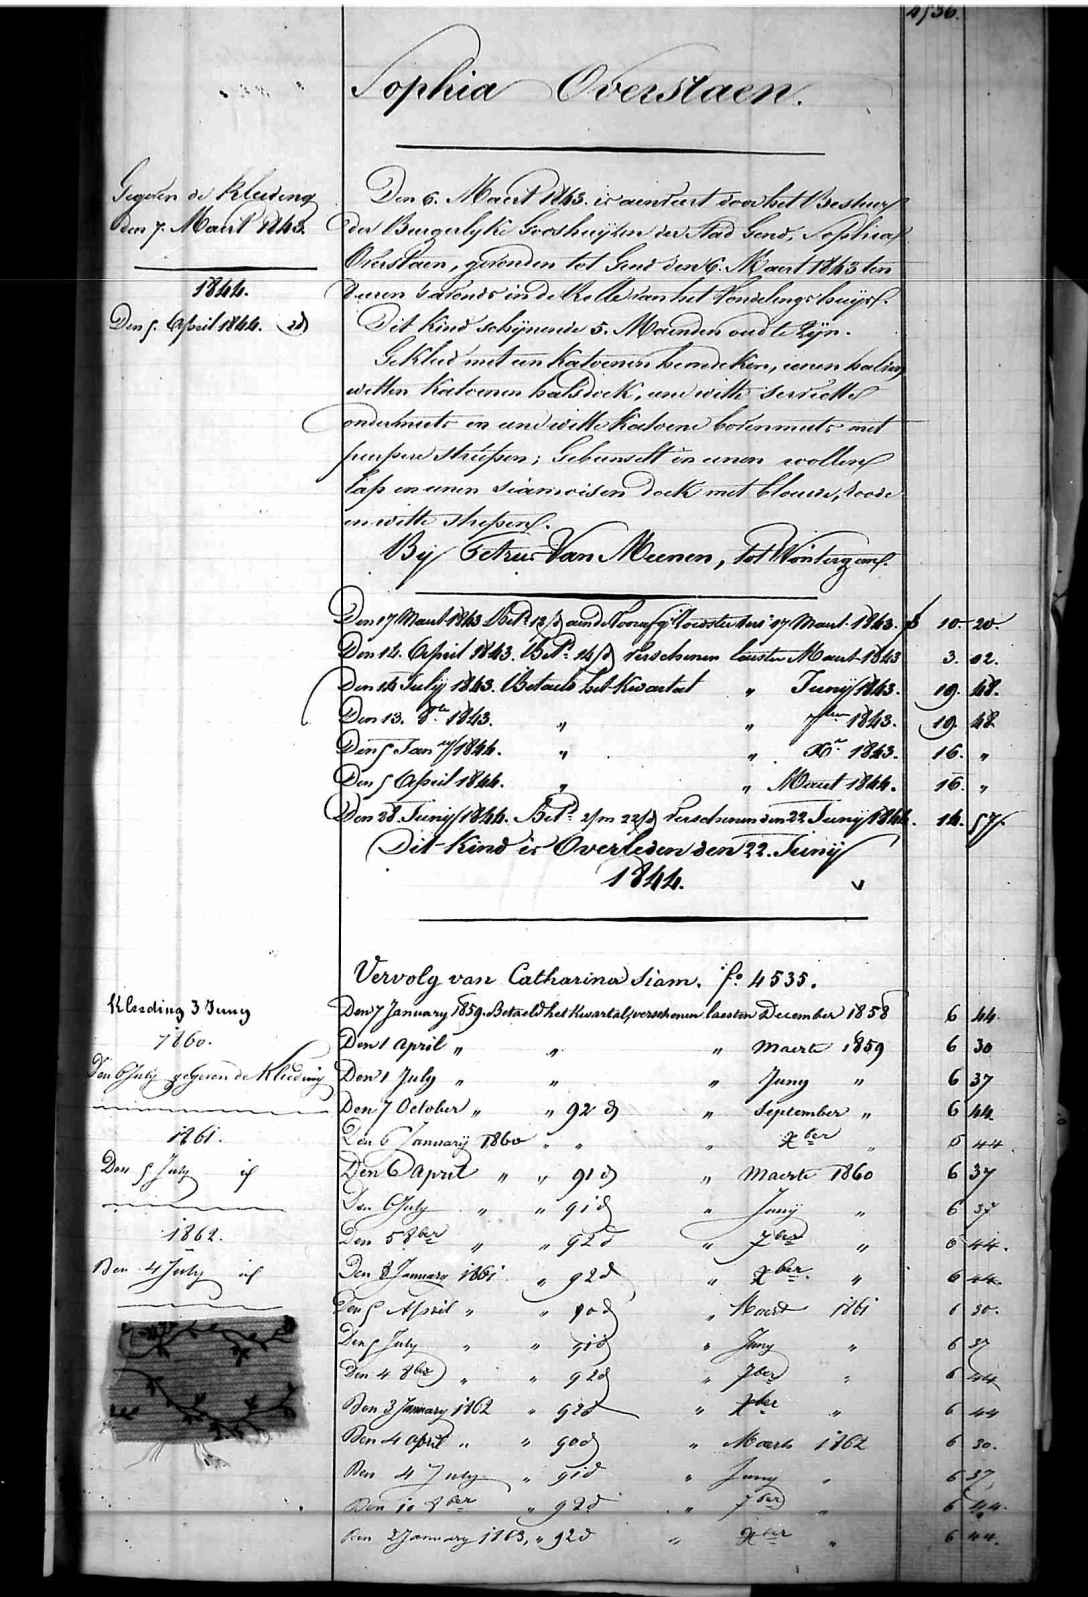 4536.
Sophia Overstaen.
Gegeven de Kleeding
den 7. Maart 1843.
1844.
Den 5 April 1844. id
Den 6. Maert 1843. is aenveert door het Bestuur
der Burgerlyke Godshuyzen der Stad Gend, Sophia
Overstaen, gevonden tot Gend den 6. Maert 1843 ten
uren s'avonds in de Rolle van het Vondelingshuys.
Dit kind schynende 5. Maenden oud te zyn.
Gekleed met een katoenen hemdeken, eenen halven
witten katoenen halsdoek, eene witte serviette
ondermuts en eene witte katoene bovenmuts met
purpere streepen; Gebunselt in eenen wollen
lap en eenen siamoisen doek met blauwe, roode
en witte streepen.
By Petrus Van Meenen, tot Wontergem.
Den 17 Maert 1843 Bet. 12/d 17 Maert 1843. f 10 20.
Den 14. April 1843. Bet. 14/d verschenen laesten Maert 1843 3. 02.
Den 14 July 1843. Betaeld het Kwartal " Juny 1843. 19. 48.
Den 13. 8bre 1843. " " 7ber 1843. 19. 48
Den 5 Jany 1844. " " Xr 1843. 16. "
Den 5 April 1844. " " Maert 1844. 16. "
Den 28. Juny 1844. Bet. 2/m 22/d verschenen den 22 Juny 1844. 14. 57.
Dit Kind is Overleden den 22. Juny
1844.
Vervolg van Catharina Siam. fo. 4535.
Kleeding 3 Juny
1860.
Den 6 July gegeven de Kleeding
1861.
Den 5 July id
1862.
Den 4 July id
Den 7 January 1859. Betaeld het Kwartal, verschenen laesten December 1858 6 44
Den 1 April " " " Maerte 1859 6 30
Den 1 July " " " Juny " 6 37
Den 7 October " " 92 d " September " 6 44
Den 6 January 1860 " " " Xber " 6 44
Den 6 April " " 91 d " Maerte 1860 6 37
Den 6 July " " 91 d " Juny " 6 37
Den 5 8ber " " 92 d " 7ber " 6 44.
Den 8 January 1861 " 92 d " Xber. " 6 44
Den 5 April " " 90 d " Maert 1861 6 30.
Den 5 July " " 91 d " Juny " 6 37
Den 4 8ber " " 92 d " 7ber " 6 44
Den 3 January 1862 " 92 d " Xber " 6 44
Den 4 April " " 90 d " Maerte 1862 6 30.
Den 4 July " 91 d " Juny " 6 37
Den 10 8ber " 92 d " 7ber " 6 44.
Den 2 January 1863, " 92 d " Xber " 6 44.